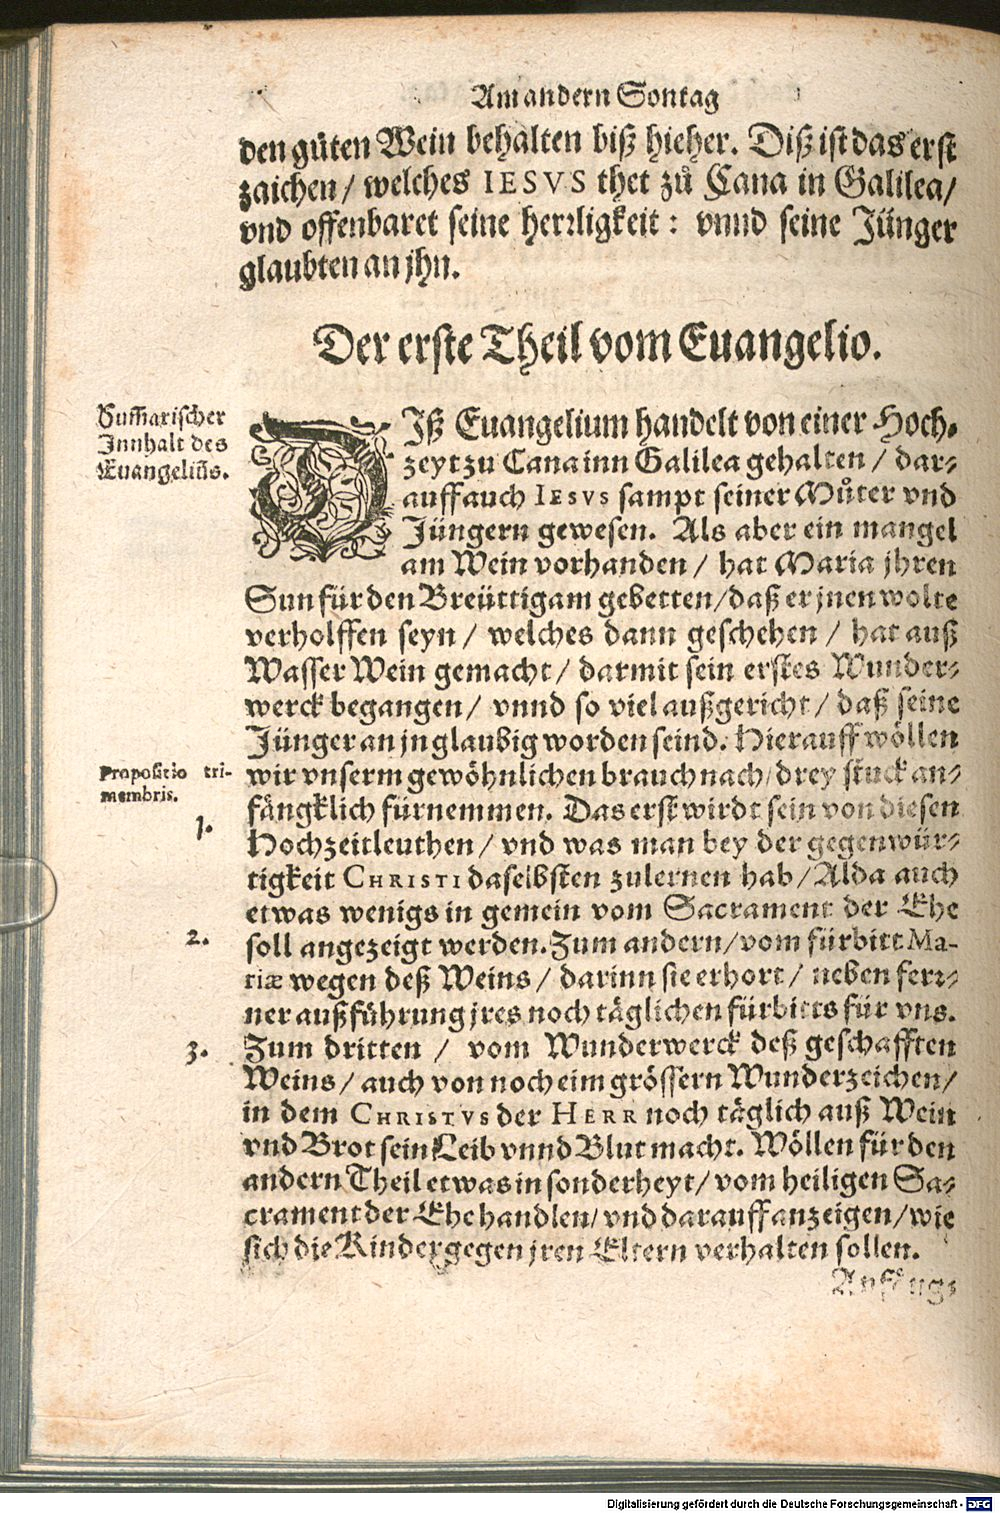 Am andern Sontag
den gůten Wein behalten biß hieher. Diß ist das erst
zaichen / welches IESVS thet zů Cana in Galilea/
vnd offenbaret seine herꝛligkeit : vnnd seine Jünger
glaubten an jhn.
Der erste Theil vom Euangelio.
Sum̃arischer
Innhalt des
Euangeliũs.
DIß Euangelium handelt von einer Hoch-
zeyt zu Cana inn Galilea gehalten / dar-
auff auch IESVS sampt seiner Můter vnd
Jüngern gewesen. Als aber ein mangel
am Wein vorhanden / hat Maria jhren
Sun für den Breüttigam gebetten/daß er jnen wolte
verholffen seyn / welches dann geschehen / hat auß
Wasser Wein gemacht/ darmit sein erstes Wunder-
werck begangen/ vnnd so viel außgericht/ daß seine
Jünger an jn glaubig worden seind. Hierauff wöllen
Propositio tri-
membris.
wir vnserm gewöhnlichen brauch nach/drey stuck an-
fängklich fürnemmen. Das erst wirdt sein von diesen
1.
Hochzeitleuthen/ vnd was man bey der gegenwür-
tigkeit CHRISTI daselbsten zulernen hab/Alda auch
etwas wenigs in gemein vom Sacrament der Ehe
2.
soll angezeigt werden. Zum andern/vom fürbitt Ma-
riæ wegen deß Weins/ darinn sie erhort/ neben ferꝛ-
ner außführung jres noch täglichen fürbitts für vns.
3.
Zum dritten / vom Wunderwerck deß geschafften
Weins/ auch von noch eim grössern Wunderzeichen/
in dem CHRISTVS der HERR noch täglich auß Wein
vnd Brot sein Leib vnnd Blut macht. Wöllen für den
andern Theil etwas in sonderheyt/ vom heiligen Sa-
crament der Ehe handlen/ vnd darauff anzeigen/ wie
sich die Kinder gegen jren Eltern verhalten sollen.
Digitalisierung gefördert durch die Deutsche Forschungsgemeinschaft - DFG